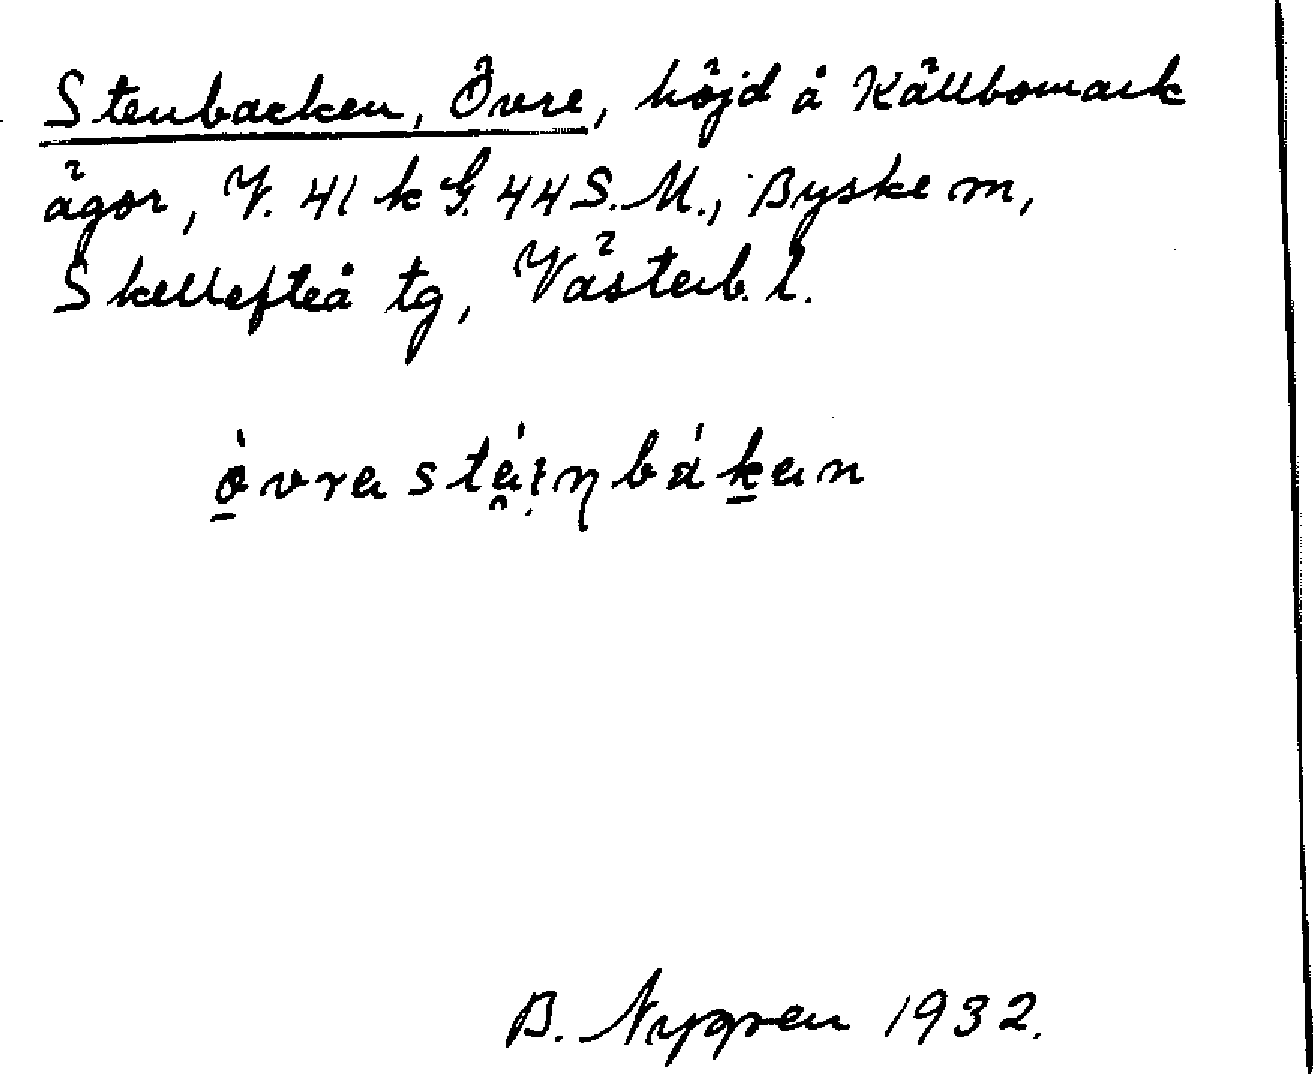 Stenbacken, Övre, höjd å Källbomark
ägor, V. 41 k G. 44 S. M., Byske m,
Skellefteå tg, Västerb. l.
B. Nygren 1932.